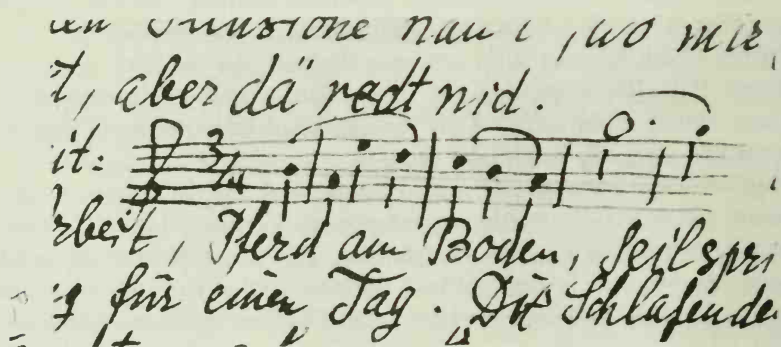 nau i, wo mir
t, aber dä redt nid.
it: 3/4
rbeit, Pferd am Boden, Seilspri
g für einen Tag. Die Schlafende